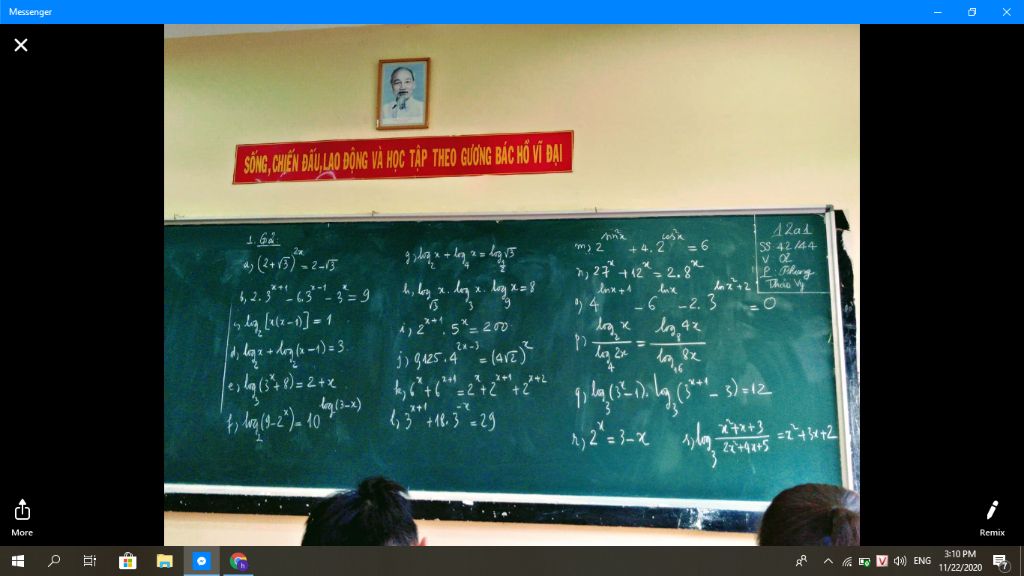 Messenger
SỐNG, CHIẾN ĐẤU, LAO ĐỘNG VÀ HỌC TẬP THEO GƯƠNG BÁC HỒ VĨ ĐẠI
1. G2:
a, (2+√3)^2x = 2-√3
b, 2.3^x+1 - 6.3^x-1 - 3^x = 9
c, log_2 [x(x-1)] = 1
d, log_2 x + log_2 (x-1) = 3
e, log_3 (3^x + 8) = 2 + x
f, log_2 (9-2^x) = 10^log(3-x)
g, log_2 x + log_4 x = log_1/2 √3
h, log_√3 x . log_3 x . log_9 x = 8
i, 2^x+1 . 5^x = 200
j, 0,125 . 4^2x-3 = (4√2)^x
k, 6^x + 6^x+1 = 2^x + 2^x+1 + 2^x+2
l, 3^x+1 + 18.3^-x = 29
m, 2^sin²x + 4.2^cos²x = 6
n, 27^x + 12^x = 2.8^x
o, 4^lnx+1 - 6^lnx - 2.3^lnx²+2 = 0
p, log_2 x / log_4 2x = log_8 4x / log_16 8x
q, log_3 (3^x - 1) . log_3 (3^x+1 - 3) = 12
r, 2^x = 3-x
s, log_3 x²+x+3 / 2x²+4x+5 = x² + 3x + 2
12a1
SS: 42/44
V: 02
P: Phung
Thảo Vy
More
Remix
ENG
3:10 PM
11/22/2020
7